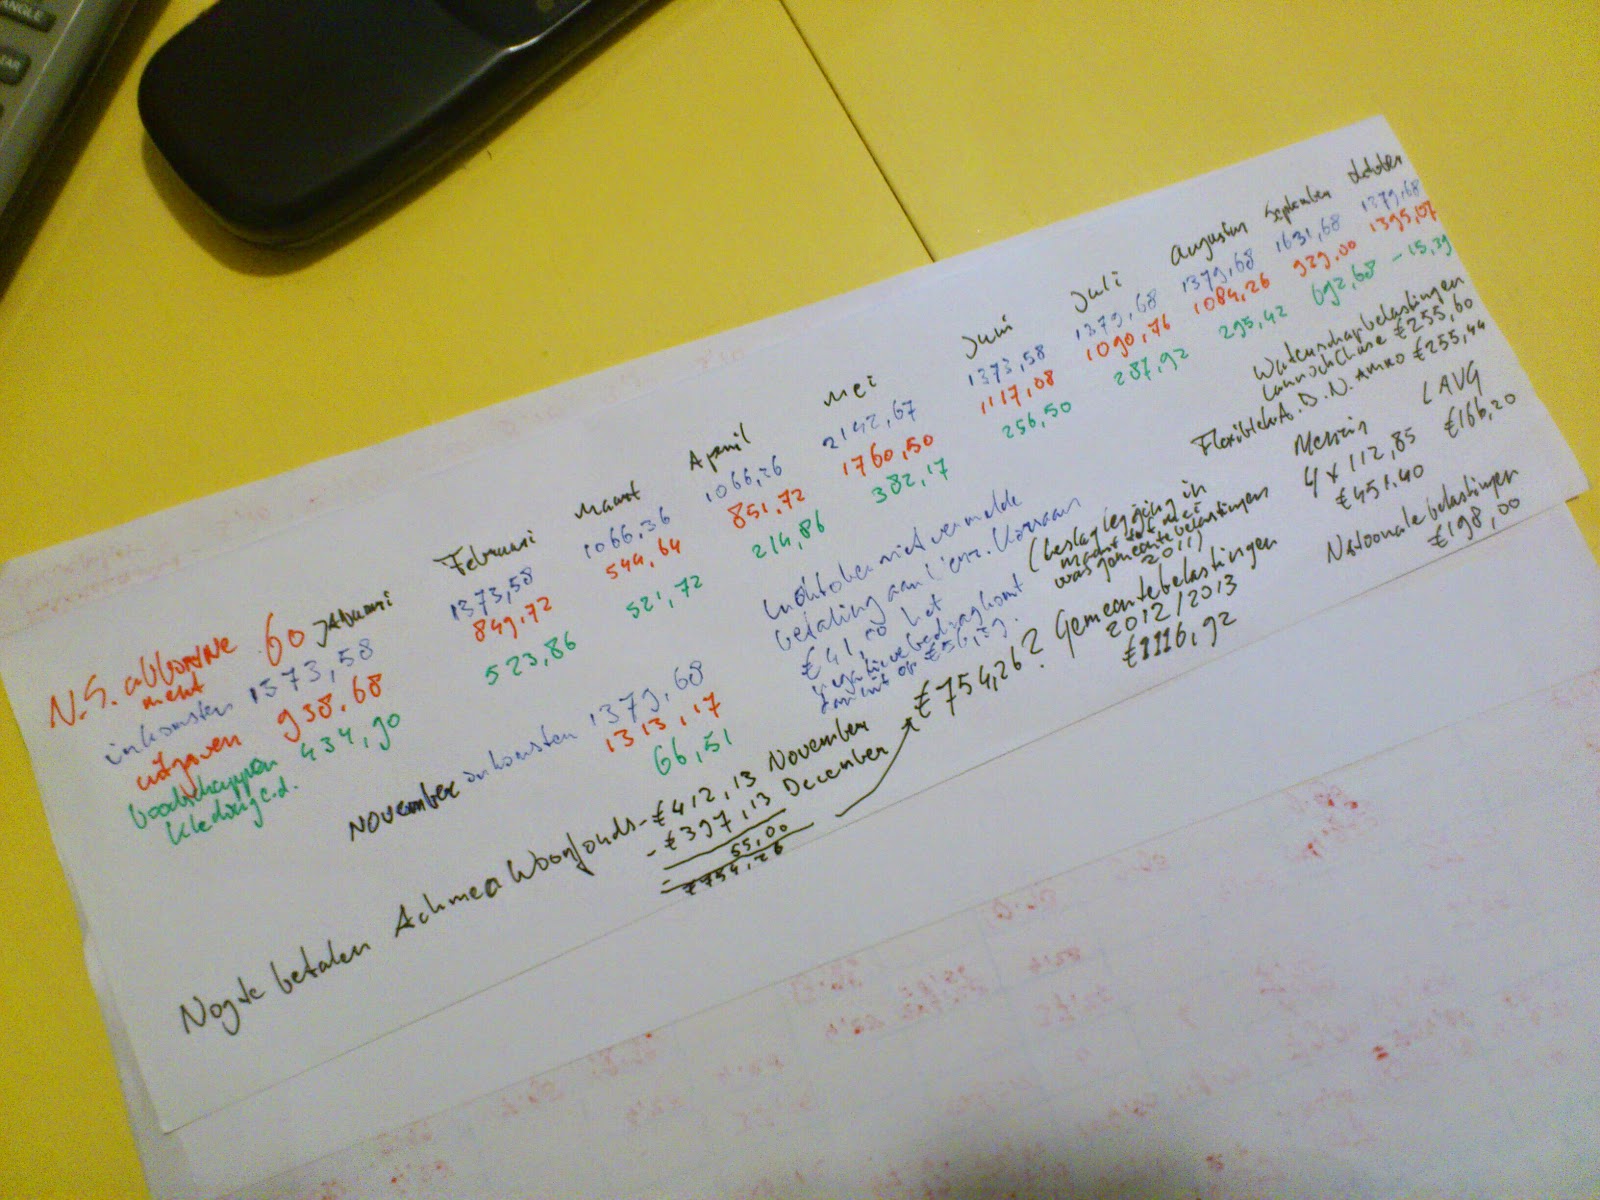 ANGLE
Januari Februari Maart April Mei Juni Juli Augustus September Oktober
N.S. abbonne
ment 60
inkomsten 1373,58 1373,58 1066,36 1066,26 2142,67 1373,58 1379,68 1379,68 1631,68 1379,68
uitgaven 938,68 849,72 544,64 851,72 1760,50 1117,08 1090,76 1084,26 939,00 1395,07
boodschappen 434,90 523,86 521,72 214,86 382,17 256,50 287,92 295,42 692,68 -15,39
kleding e.d.
November inkomsten 1379,68
1313,17
66,51
In oktober niet vermelde
betaling aan
€41,00 het
negatieve bedrag komt
dan uit op €56,39.
(beslaglegging in
maart tot mei
was gemeentebelastingen
2011)
Waterschapbelastingen
€255,60
Flexibel A.B.N. AMRO €255,44
Menzis
4 x 112,85
€451.40
LAVG
€166,20
Nationale belastingen
€198,00
Gemeentebelastingen
2012/2013
€1116,92
Nog te betalen Achmea Woonfonds - €412,13 November
- €397,13 December
55,00
€754,26
€754,26?